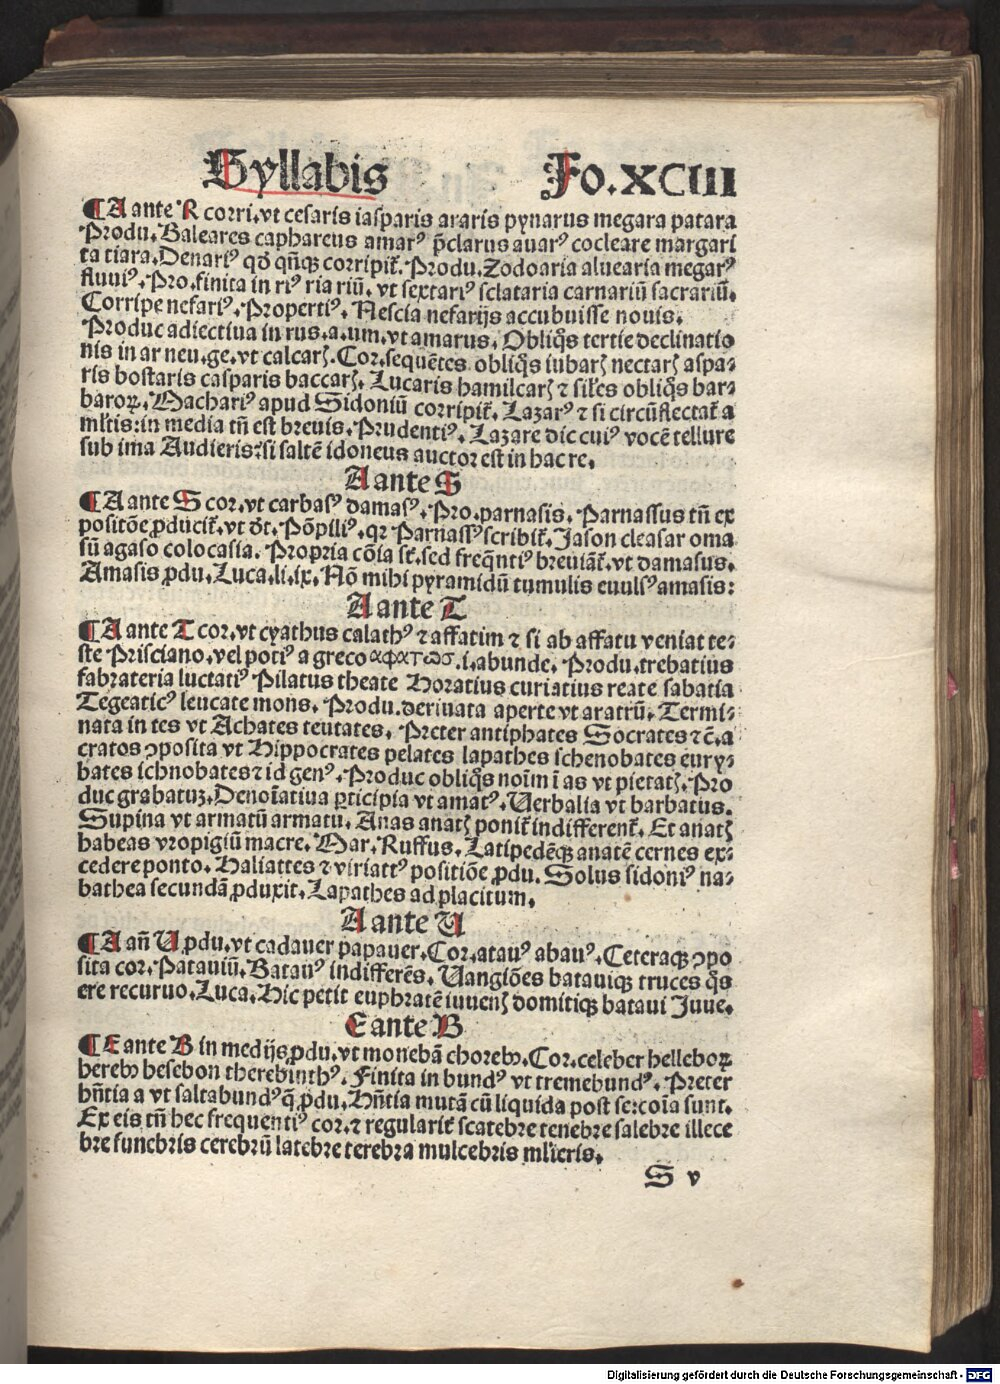 Syllabis Fo.XCIII
¶A ante R corri.vt cesaris iasparis araris pynarus megara patara
Produ. Baleares caphareus amarꝰ p̄clarus auarꝰ cocleare margari
ta tiara. Denariꝰ qđ qn̄qꝫ corripit᷑. Produ. Zodoaria aluearia megarꝰ
fluuiꝰ. Pro. finita in riꝰ ria riū. vt sextariꝰ sclataria carnariū sacrariū.
Corripe nefariꝰ. Propertiꝰ. Nescia nefarijs accubuisse nouis.
Produc adiectiua in rus.a.um.vt amarus. Obliqͦs tertie declinatio
nis in ar neu.ge.vt calcarꝭ. Cor.sequētes obliqͦs iubarꝭ nectarꝭ aspa⸗
ris bostaris casparis baccarꝭ. Lucaris hamilcarꝭ ⁊ sil̄es obliqͦs bar⸗
baroꝝ. Machariꝰ apud Sidoniū corripit᷑. Lazarꝰ ⁊ si circūflectat᷑ a
ml̄tis: in media tn̄ est breuis. Prudentiꝰ. Lazare dic cuiꝰ vocē tellure
sub ima Audieris: si saltē idoneus auctor est in hac re.
A ante S
¶A ante S cor.vt carbasꝰ damasꝰ. Pro.parnasis. Parnassus tn̄ ex
positōe ꝓducit᷑.vt ōt. Pōpiliꝰ. qꝛ Parnassꝰ scribit᷑. Jason cleasar oma
sū agaso colocasia. Propria cōia st᷑. sed freqn̄tiꝰ breuiāt᷑.vt damasus.
Amasis ꝓdu. Luca.li.ix. Nō mihi pyramidū tumulis euulsꝰ amasis:
A ante T
¶A ante T cor.vt cyathus calathꝰ ⁊ affatim ⁊ si ab affatu veniat te⸗
ste Prisciano.vel potiꝰ a greco αφατωσ.i.abunde. Produ.trebatius
fabrateria luctatiꝰ Pilatus theate Horatius curiatius reate sabatia
Tegeaticꝰ leucate mons. Produ.deriuata aperte vt aratrū. Termi⸗
nata in tes vt Achates teutates. Preter antiphates Socrates ⁊ c̄.a
cratos ꝯposita vt Hippocrates pelates lapathes schenobates eury⸗
bates ichnobates ⁊ id genꝰ. Produc obliqͦs noīm ī as vt pietatꝭ. Pro
duc grabatuꝫ. Denoīatiua ꝑticipia vt amatꝰ. Uerbalia vt barbatus.
Supina vt armatū armatu. Anas anatꝭ ponit᷑ indifferent᷑. Et anatꝭ
habeas vropigiū macre. Mar. Ruffus. Latipedēqꝫ anatē cernes ex⸗
cedere ponto. Haliattes ⁊ viriattꝰ positiōe ꝓdu. Solus sidoniꝰ na⸗
bathea secundā ꝓduxit. Lapathes ad placitum.
A ante U
¶A an̄ U ꝓdu.vt cadauer papauer. Cor.atauꝰ abauꝰ. Ceteraqꝫ ꝯpo
sita cor. Patauiū. Batauꝰ indifferēs. Uangiōes batauiqꝫ truces qͦs
ere recuruo. Luca. Hic petit euphratē iuuenꝭ domitiqꝫ bataui Juue.
E ante B
¶E ante B in medijs ꝓdu.vt monebā choreb. Cor.celeber helleboꝝ
hereb hesebon therebinthꝰ. Finita in bundꝰ vt tremebundꝰ. Preter
hn̄tia a vt saltabundꝰ q̄ ꝓdu. Hn̄tia mutā cū liquida post se: coīa sunt.
Ex eis tn̄ hec frequentiꝰ cor.⁊ regularit᷑ scatebre tenebre salebre illece
bre funebris cerebrū latebre terebra mulcebris ml̄ieris.
S v
Digitalisierung gefördert durch die Deutsche Forschungsgemeinschaft - DFG